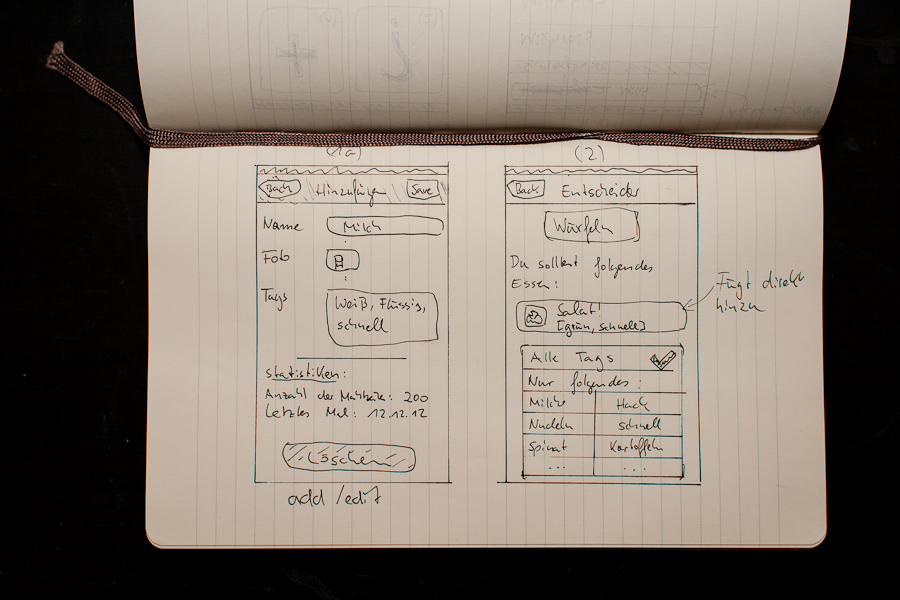 (1a)
Back Hinzufügen Save
Name Milch
Foto
Tags Weiß, Flüssig,
schnell
Statistiken:
Anzahl der Mahlzeiten: 200
Letztes Mal: 12.12.12
Löschen
add / edit
(2)
Back Entscheider
Würfeln
Du solltest folgendes
Essen:
Salat!
[grün, schnell]
Fügt direkt
hinzu
Alle Tags
Nur folgendes:
Milch Hack
Nudeln schnell
Spinat Kartoffeln
... ...